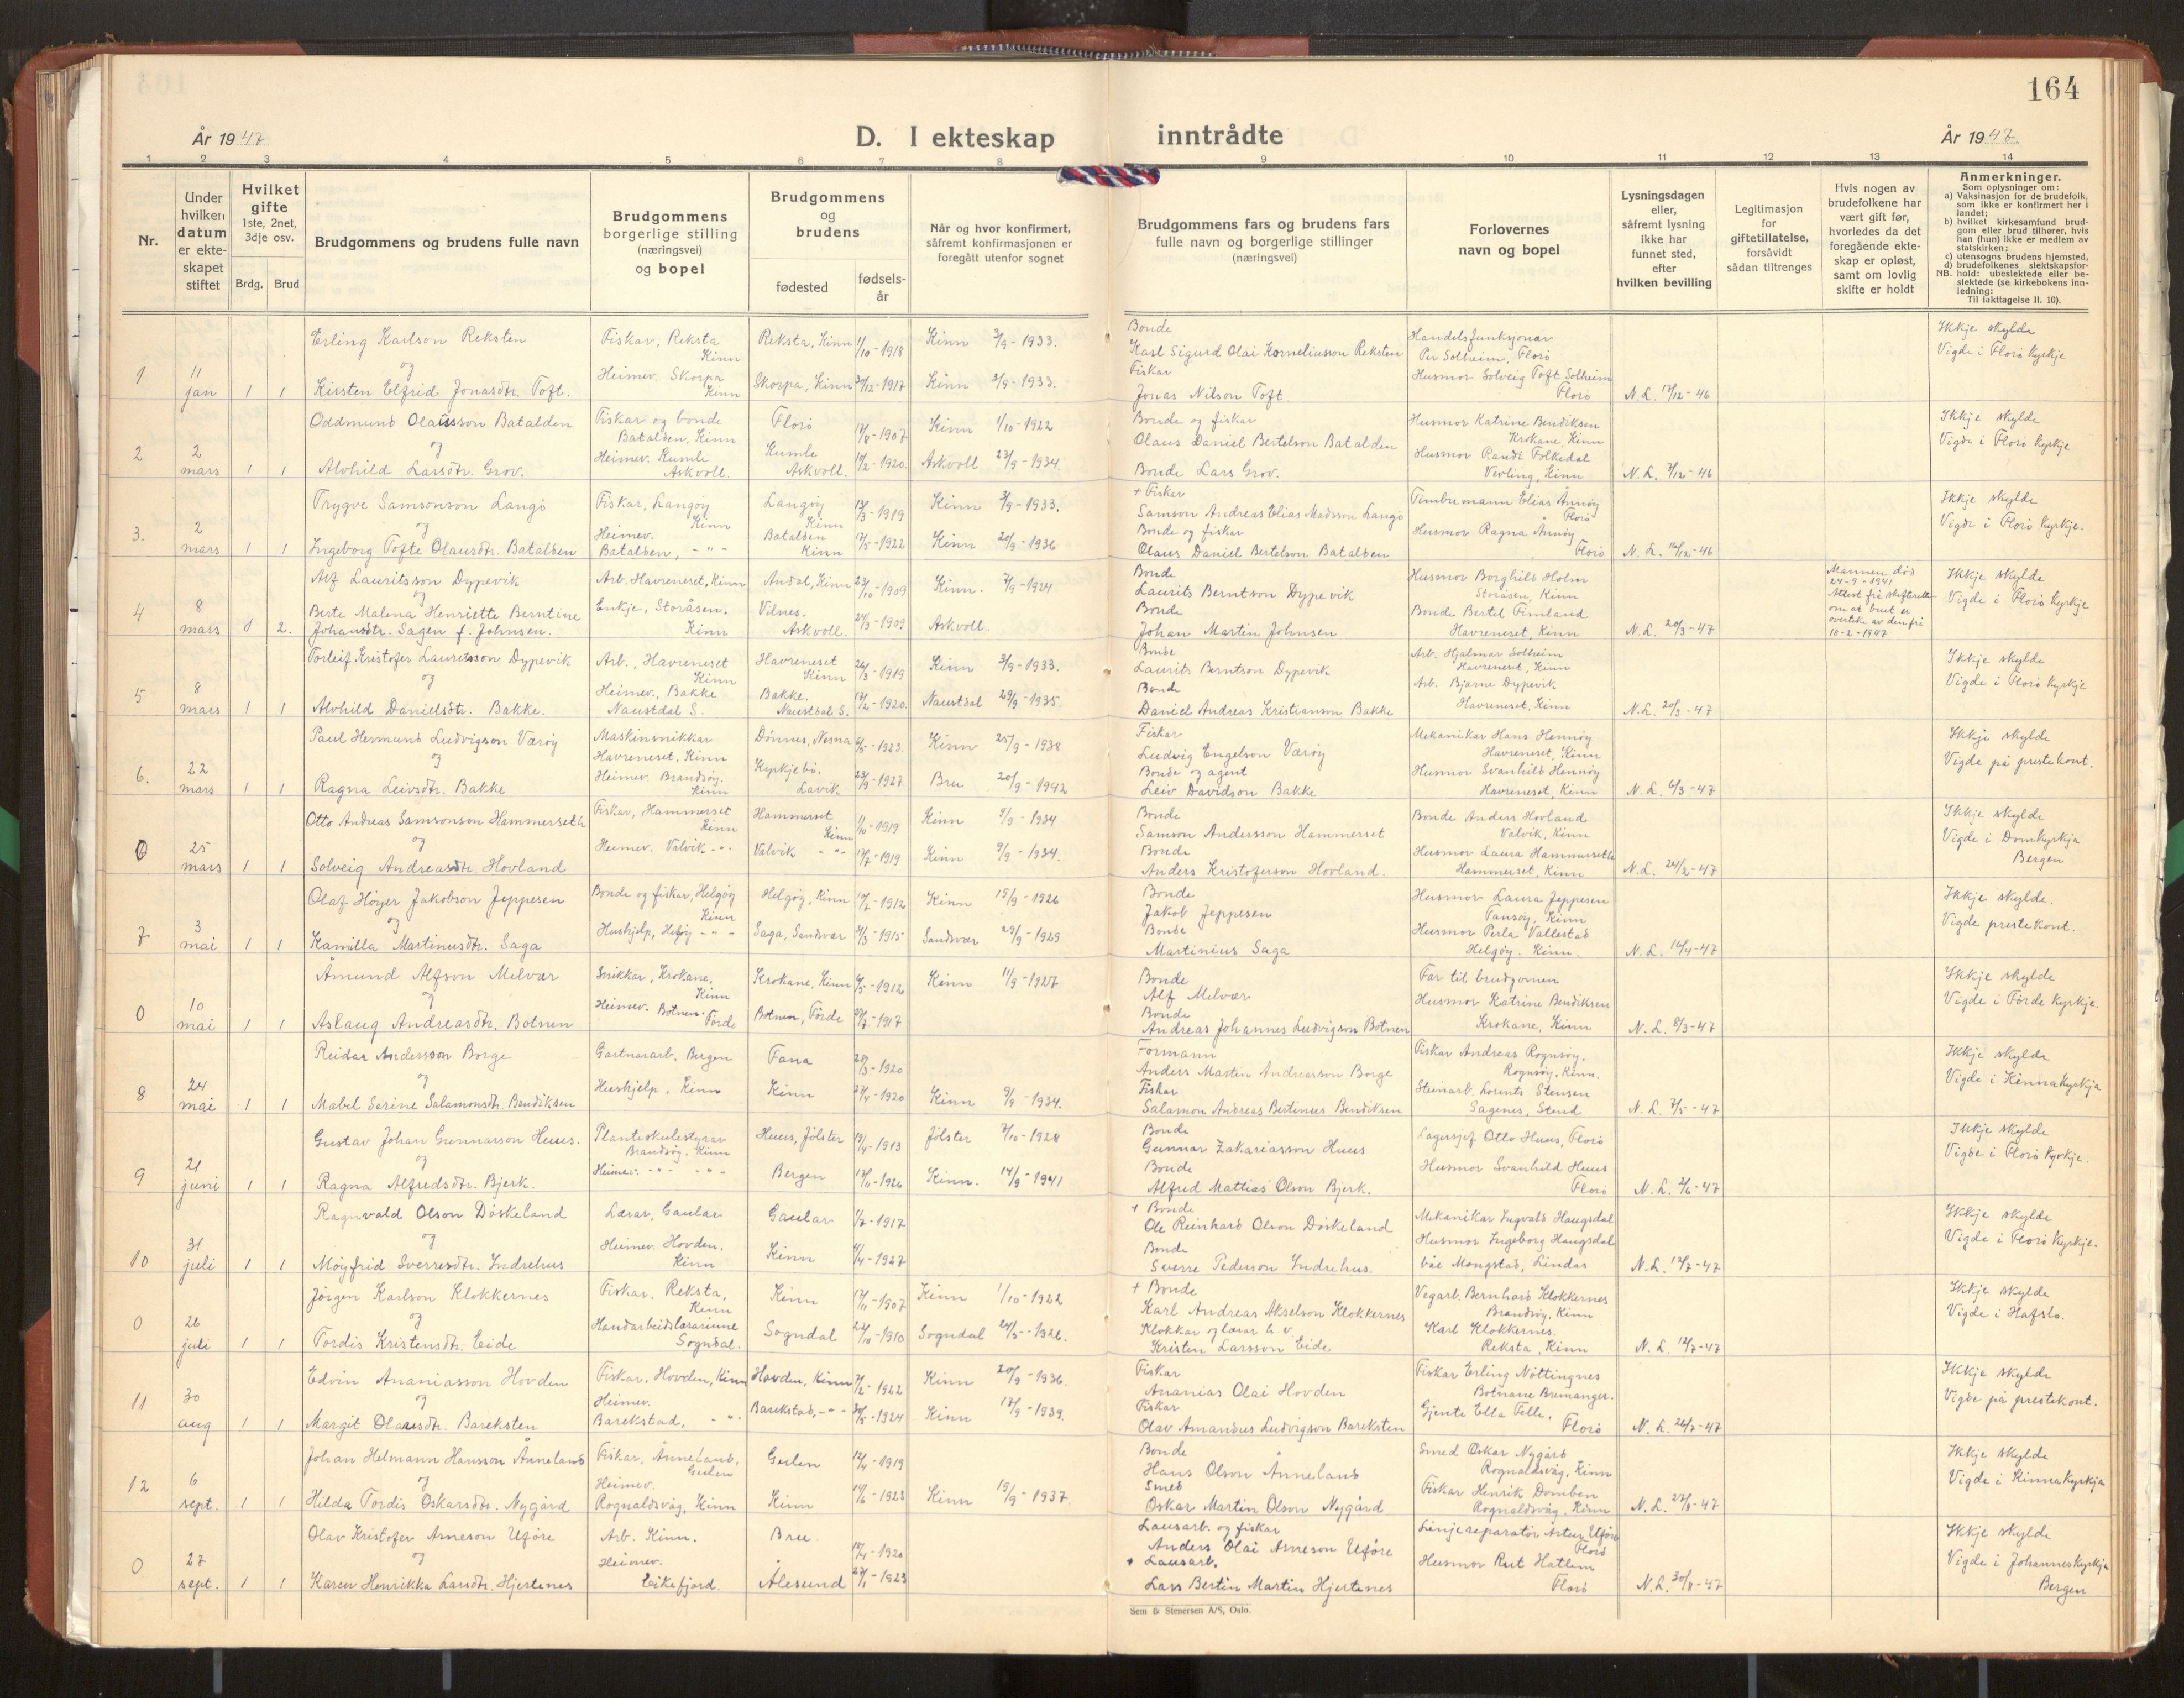 164
År 1947
D. I ekteskap inntrådte
År 1947
1 2 3 4 5 6 7 8 9 10 11 12 13 14
Nr.
Under hvilken datum er ekteskapet stiftet
Hvilket gifte 1ste, 2net, 3dje osv.
Brdg. Brud
Brudgommens og brudens fulle navn
Brudgommens borgerlige stilling (næringsvei) og bopel
Brudgommens og brudens
fødested
fødselsår
Når og hvor konfirmert, såfremt konfirmasjonen er foregått utenfor sognet
Brudgommens fars og brudens fars fulle navn og borgerlige stillinger (næringsvei)
Forlovernes navn og bopel
Lysningsdagen eller, såfremt lysning ikke har funnet sted, efter hvilken bevilling
Legitimasjon for giftetillatelse, forsåvidt sådan tiltrenges
Hvis nogen av brudefolkene har vært gift før, hvorledes da det foregående ekteskap er opløst, samt om lovlig skifte er holdt
Anmerkninger.
Som oplysninger om:
a) Vaksinasjon for de brudefolk, som ikke er konfirmert her i landet;
b) hvilket kirkesamfund brudgom eller brud tilhører, hvis han (hun) ikke er medlem av statskirken;
c) utensogns brudens hjemsted,
d) brudefolkenes slektskapsforhold: ubeslektede eller beslektede (se kirkebokens innledning:
NB.
Til iakttagelse II. 10).
Erling Karlson Reksten Fiskar, Reksta Kinn Reksta, Kinn 1/10-1918 Kinn 3/9-1933. Bonde Karl Sigurd Olai Korneliusson Reksten Handelsfunksjonær Per Solheim, Florö Ikkje skylde
og
1 11 jan 1 1 Kirsten Elfrid Jonasdtr. Toft. Heimev. Skorpa Kinn Skorpa, Kinn 3/12-1917 Kinn 3/9-1933. Fiskar Jonas Nilson Toft Husmor Solveig Toft Solheim Florö N.L. 17/12-46 Vigde i Florö Kyrkje
Oddmund Olausson Batalden Fiskar og bonde Batalden, Kinn Florö 17/8-1907 Kinn 1/10-1922 Bonde og fiskar Olaus Daniel Bertelson Batalden Husmor Katrine Bendiksen Krokane, Kinn Ikkje skylde
og
2 2 mars 1 1 Alvhild Larsdtr. Grov. Heimev. Kumle Askvoll. Kumle Askvoll. 19/2-1920 Askvoll 23/9-1934. Bonde Lars Grov. Husmor Randi Folkedal Vevling, Kinn N.L. 7/12-46 Vigde i Florö Kyrkje
Trygve Samsonson Langö Fiskar, Langöy Kinn Langöy Kinn 13/3-1919 Kinn 3/9-1933. + Fiskar Samson Andreas Elias Madsson Langö Timbremann Elias Ånnöy Florö Ikkje skylde
og
3. 2 mars 1 1 Ingeborg Tofte Olausdtr. Batalden Heimev. Batalden, -"- Batalden Kinn 17/5-1922 Kinn 20/9-1936 Bonde og fiskar Olaus Daniel Bertelson Batalden Husmor Ragna Ånnöy Florö N.L. 16/12-46 Vigde i Florö Kyrkje.
Alf Lauritsson Dypevik Arb. Havreneset, Kinn Andal, Kinn 23/10-1909 Kinn. 7/9-1924 Bonde Laurits Berntson Dypevik Husmor Borghild Holm Storåsen, Kinn Mannen död 24-9-1941 Ikkje skylde
og
4 8 mars 0 2. Berte Malena Henriette Berntine Johansdtr. Sagen f. Johnsen. Enkje, Storåsen, Kinn Vilnes. Askvoll. 24/3-1909 Askvoll. Bonde Johan Martin Johnsen Bonde Bertel Fimland Havreneset, Kinn N.L. 20/3-47 Attest frå skifterett om at buet er overteke av den frå 10-2-1947 Vigde i Florö Kyrkje
Torleif Kristofer Lauritsson Dypevik Arb., Havreneset Kinn Havreneset Kinn 26/3-1919 Kinn 3/9-1933. Bonde Laurits Berntson Dypevik Arb. Hjalmar Solheim Havreneset, Kinn Ikkje skylde
og
5 8 mars 1 1 Alvhild Danielsdtr. Bakke. Heimev., Bakke Naustdal S. Bakke. Naustdal S. 17/2-1920. Naustdal 29/9-1935. Bonde Daniel Andreas Kristianson Bakke Arb. Bjarne Dypevik Havreneset, Kinn N.L. 20/3-47 Vigde i Florö Kyrkje
Paul Hermund Ludvigson Væröy Maskinsnikkar Havreneset, Kinn Dönnes, Nesna 6/5-1923. Kinn 25/9-1938 Fiskar Ludvig Engelson Væröy Mekanikar Hans Hennöy Havreneset, Kinn Ikkje skylde
og
6. 22 mars 1 1 Ragna Leivsdtr. Bakke Heimev. Brandsöy. Kinn Kyrkjebö. Lavik 23/9-1927 Bru 20/9-1942 Bonde og agent Leiv Davidson Bakke Husmor Svanhild Hennöy Havreneset, Kinn N.L. 6/3-47 Vigde på prestekont.
Otto Andreas Samsonson Hammerseth Fiskar, Hammerset Kinn Hammerset Kinn 1/10-1919 Kinn 9/9-1934 Bonde Samson Andersson Hammerset Bonde Anders Hovland Valvik, Kinn Ikkje skylde
og
0 25 mars 1 1 Solveig Andreasdtr. Hovland Heimev. Valvik -"- Valvik -"- 17/7-1919 Kinn 9/9-1934. Bonde Anders Kristoferson Hovland. Husmor Laura Hammerseth Hammerset, Kinn N.L. 24/2-47 Vigde i Domkyrkja Bergen
Olaf Höyer Jakobson Jeppesen Bonde og fiskar, Helgöy Kinn Helgöy, Kinn 17/7-1912 Kinn 19/9-1926 Bonde Jakob Jeppesen Husmor Laura Jeppesen Tansöy, Kinn Ikkje skylde.
og
7 3 mai 1 1 Kamilla Martinusdtr. Saga Huskjelp, Helgöy -"- Saga, Sandsvær 7/3-1915 Sandsvær 29/9-1929 Bonde Martinius Saga Husmor Perla Vallestad Helgöy. Kinn. N.L. 16/4-47 Vigde prestekont.
Åmund Alfson Melvær Snikkar, Krokane, Kinn Krokane, Kinn 6/5-1912 Kinn 11/9-1927 Bonde Alf Melvær Far til brudgomen Ikkje skylde
og
0 10 mai 1 1 Aslaug Andreasdtr. Botnen Heimev. Botnen Förde Botnen, Förde 7/7-1917 Bonde Andreas Johannes Ludvigson Botnen Husmor Katrine Bendiksen Krokane, Kinn N.L. 8/3-47 Vigde i Förde Kyrkje.
Reidar Andersson Borge Gartnararb. Bergen Fana 25/3-1920 Formann Anders Martin Andreasson Borge Fiskar Andreas Rognsöy. Rognsöy, Kinn. Ikkje skylde
og
8 24 mai 1 1 Mabel Serine Salamonsdtr. Bendiksen Huskjelp, Kinn Kinn 27/4-1920 Kinn 9/9-1934. Fiskar Salamon Andreas Bertinus Bendiksen Steinarb. Lorents Stensen Sagenes, Stend N.L. 7/5-47 Vigde i Kinnakyrkja
Gustav Johan Gunnarson Huus. Planteskulestyrar Brandsöy. Kinn Huus, Jölster 19/4-1913 Jölster 7/10-1928 Bonde Gunnar Zakariasson Huus Lagersjef Otto Huus, Florö Ikkje skylde
og
9 21 juni 1 1 Ragna Alfredsdtr. Bjerk. Heimev. -"- -"- Bergen 17/11-1926 Kinn. 14/9-1941 Bonde Alfred Mattias Olson Bjerk. Husmor Svanhild Huus Florö N.L. 7/6-47 Vigde i Florö Kyrkje.
Ragnvald Olson Döskeland Lærar, Gaular Gaular 1/7-1917 + Bonde Ole Reinhard Olson Döskeland Mekanikar Ingvald Haugsdal Ikkje skylde
og
10 31 juli 1 1 Möyfrid Sverresdtr. Indrehus Heimev. Hovden. Kinn Kinn 4/4-1927 Bonde Sverre Pederson Indrehus. Husmor Ingeborg Haugsdal båe Mongstad, Lindås N.L. 12/7-47 Vigde i Florö Kyrkje.
Jörgen Karlson Klokkernes Fiskar. Reksta, Kinn Kinn 17/11-1907 Kinn 1/10-1922 + Bonde Karl Andreas Akselson Klokkernes Vegarb. Bernhard Klokkernes Brandsöy, Kinn Ikkje skylde
og
0 26 juli 1 1 Tordis Kristensdtr. Eide Handarbeidslærarinne Sogndal. Sogndal 22/10-1910 Sogndal 24/5-1926. Klokkar og lærar h.v. Kristen Larsson Eide Karl Klokkernes. Reksta, Kinn N.L. 12/7-47 Vigde i Hafslo.
Edvin Ananiasson Hovden Fiskar, Hovden, Kinn Hovden, Kinn 7/2-1922 Kinn 20/9-1936. Fiskar Ananias Olai Hovden Fiskar Erling Nöttingnes Botnane Bremanger. Ikkje skylde
og
11 30 aug 1 1 Margit Olausdtr. Bareksten Heimev. Barekstad, -"- Barekstad, -"- 30/5-1924 Kinn 17/9-1939. Fiskar Olav Amandus Ludvigson Bareksten Gjente Ella Felle, Florö N.L. 26/7-47 Vigde på prestekont.
Johan Helmann Hansson Ånneland Fiskar, Ånneland, Gulen Gulen 12/4-1919 Bonde Hans Olson Ånneland Smed Oskar Nygård Rognaldsvåg, Kinn Ikkje skylde
og
12 6 sept. 1 1 Hilda Tordis Oskarsdtr. Nygård Heimev. Rognaldsvåg, Kinn Kinn 11/6-1923 Kinn 19/9-1937. Smed Oskar Martin Olson Nygård Fiskar Henrik Domben Rognaldsvåg, Kinn N.L. 27/8-47 Vigde i Kinnakyrkja
Olav Kristofer Arneson Uföre Arb. Kinn. Bru 18/4-1920 Lausarb. og fiskar Anders Olai Arneson Uföre Linjereparatör Artur Uföre Florö Ikkje skylde
og
0 27 sept. 1 1 Karen Henrikka Larsdtr. Hjertenes Heimev. Eikefjord. Ålesund 27/1-1923 + Lausarb. Lars Bertin Martin Hjertenes Husmor Rut Hatlem Florö N.L. 30/8-47 Vigde i Johanneskyrkja Bergen
Sem & Stenersen A/S, Oslo.